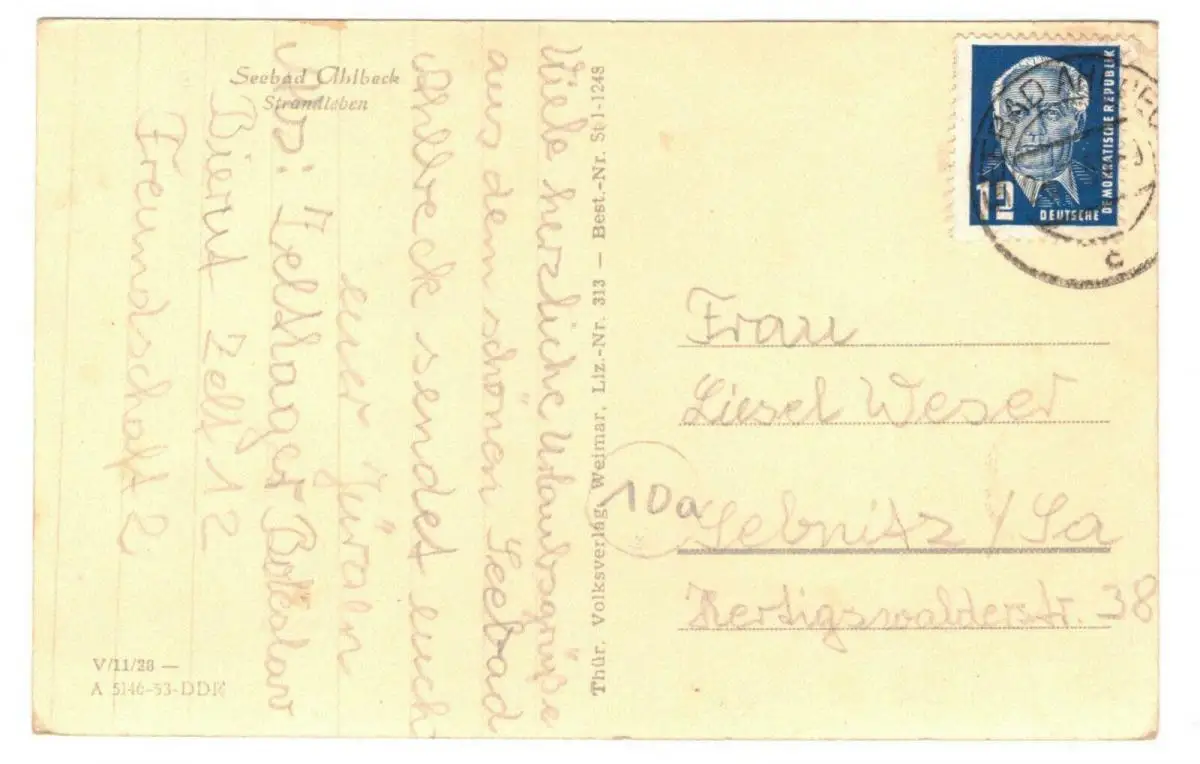 Seebad Ahlbeck
Strandleben
Viele herzliche Urlaubsgrüße
aus dem schönen Seebad
Ahlbeck sendet euch
euer
Abs: Zeltlager Boleslav
Bierut Zelt 12
Freundschaft 2
V/11/28 —
A 5146-53-DDR
Thür. Volksverlag, Weimar, Liz.-Nr. 313 — Best.-Nr. St 1-1248
12
DEUTSCHE
DEMOKRATISCHE REPUBLIK
c
Frau
Liesel Weser
10a
Sebnitz / Sa
Hertigswalderstr. 38